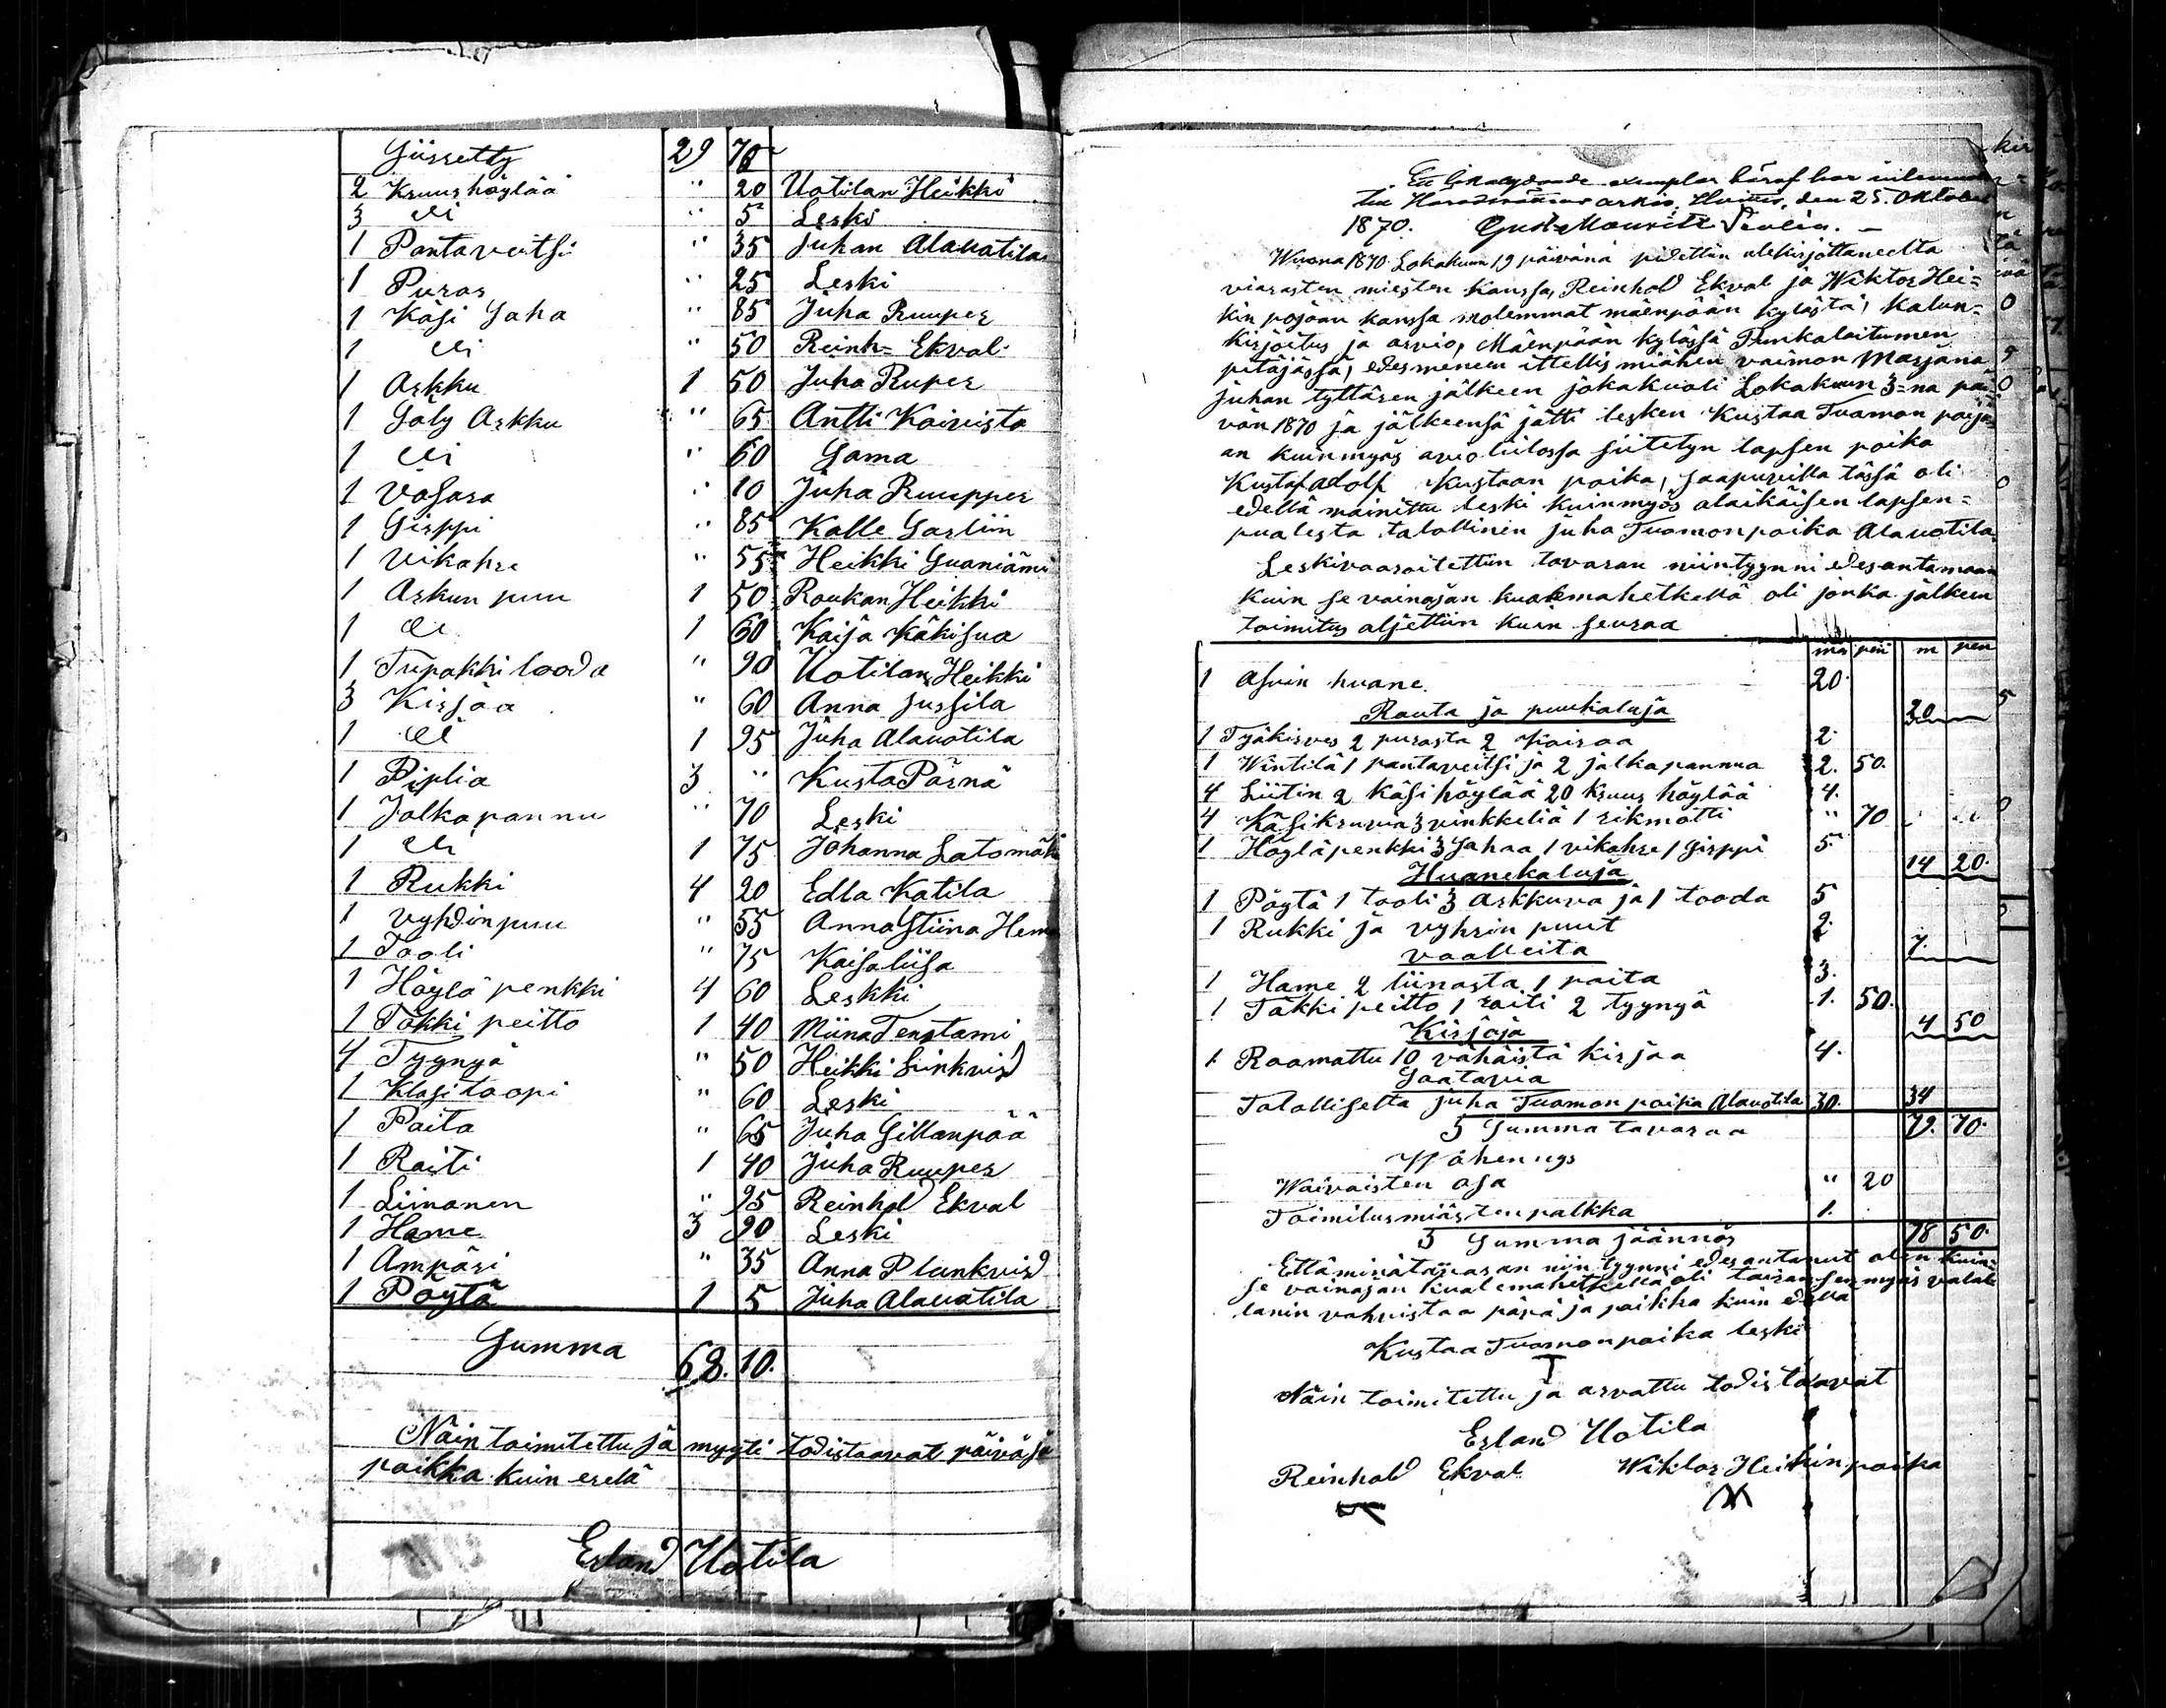 Siirretty 29 70
2 Kruus höylää " 20 Uotilan Heikki
3 " 5 Leski
1 Pantaveitsi " 35 Juhan Alauotila
1 Puras " 25 Leski
1 Käsi Saha " 85 Juha Ruuper
1 " 50 Reinh= Ekval
1 Arkku 1 50 Juha Ruper
1 Säly Arkku " 65 Antti Koivisto
1 " 60 Sama
1 Vasara " 10 Juha Ruupper
1 Sirppi " 85 Kalle Sarliin
1 Vikahre " 55 Heikki Suaniämi
1 Arkun puu 1 50 Roukan Heikki
1 1 60 Kaisa Käkisua
1 Tupakki looda " 90 Uotilan Heikki
3 Kirjaa " 60 Anna Jussila
1 1 95 Juha Alauotila
1 Piplia 3 " Kusta Pärnä
1 Jalkapannu " 70 Leski
1 1 75 Johanna Latomäk
1 Rukki 4 20 Edla Katila
1 Vyhdinpuu " 55 Anna Stiina Hem
1 Tooli " 75 Kaisaliisa
1 Höylä penkki 4 60 Leskki
1 Täkki peitto 1 40 Miina Tenstami
4 Tyynyä " 50 Heikki Linkvisd
1 Klasitoopi " 60 Leski
1 Paita " 65 Juha Sillanpää
1 Raiti 1 40 Juha Ruuper
1 Liinanen " 95 Reinhold Ekval
1 Hame 3 90 Leski
1 Ampäri " 35 Anna Plunkvisd
1 Pöytä 1 5 Juha Alauotila
Summa 68. 10.
Näin toimitettu ja myyti todistaavat päivä ja
paikka kuin erellä
Erland Uotila
exemplar häraf har
arkiv, den 25. Oktober
1870. Gust Mauritz
Wuona 1870 Lokakuun 19 päivänä pidettiin allekirjottaneelta
vierasten miesten kanssa, Reinhold Ekval ja Wiktor Hei=
kin pojaan kanssa molemmat mäenpään kylästä, kalun=
kirjoitus ja arvio, Mäenpään kylässä Punkalaitumen
pitäjässä, edesmeneen ittellis miähen vaimon Marjana
juhan tyttären jälkeen joka kuoli Lokakuun 3=na päi
vän 1870 ja jälkeensä jätti lesken Kustaa Tuamon poja
an kuin myös avioliitossa siitetyn lapsen poika
Kustaf Adolf Kustaan poika, saapuvilla tässä oli
edellä mainittu leski kuin myös alaikäisen lapsen=
pualesta talollinen Juha Tuamonpoika Alauotila
Leski vaaroitettiin tavaran niintyynni edesantamaan
kuin se vainajan kuolemahetkellä oli jonka jälkeen
toimitus aljettiin kuin seuraa
mar pen m pen
1 Asuin huane 20.
Rauta ja puukaluja 20
1 Työkirves 2 purasta 2 Kairaa 2.
1 Wintilä 1 pantaveitsi ja 2 jalkapannua 2. 50.
4 Liitin 2 Käsi höylää 20 kruus höylää 4.
4 Käsikruvia 3 vinkkeliä 1 rikmotti " 70
1 Höyläpenkki 3 Sahaa 1 vikahre 1 Sirppi 5.
14 20.
Huanekaluja
1 Pöytä 1 tooli 3 Arkkuva ja 1 tooda 5
1 Rukki ja vyhrin puut 2.
7.
vaatteita
1 Hame 2 liinasta 1 paita 3.
1 Täkki peitto 1 raiti 2 tyynyä 1. 50.
4 50
Kirjoja
1 Raamattu 10 vähäistä kirjaa 4.
Saatavia
Talolliselta Juha Tuamon poika Alauotila 30. 34
S Summa tavaraa 79. 70.
Wähennys
Waivaisten osa " 20
Toimitusmiästen palkka 1.
S Summa jäännös 78 50.
Että minä tavaran niin tyynni edesantanut olen kuin
se vainajan kualemahetkellä oli taidan sen myös valal
lanin vahvistaa päivä ja paikka kuin edellä
Kustaa Tuamonpoika leski
Näin toimitettu ja arvattu todistaavat
Erland Uotila
Reinhold Ekval Wiktor Heikinpoika